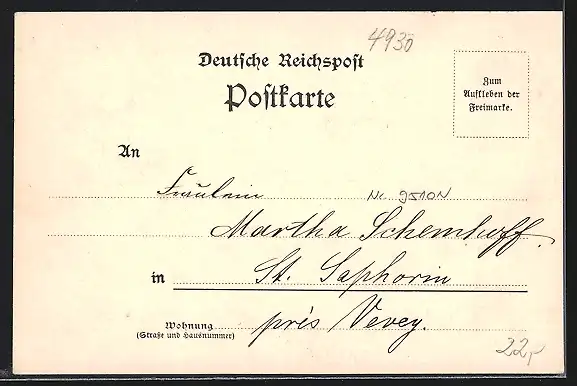 4930
Deutsche Reichspost
Postkarte
Zum
Aufkleben der
Freimarke.
An
Fräulein Nr. 9510N
Martha Schemhoff.
in St. Saphorin
Wohnung près Vevey.
(Straße und Hausnummer)
22,-